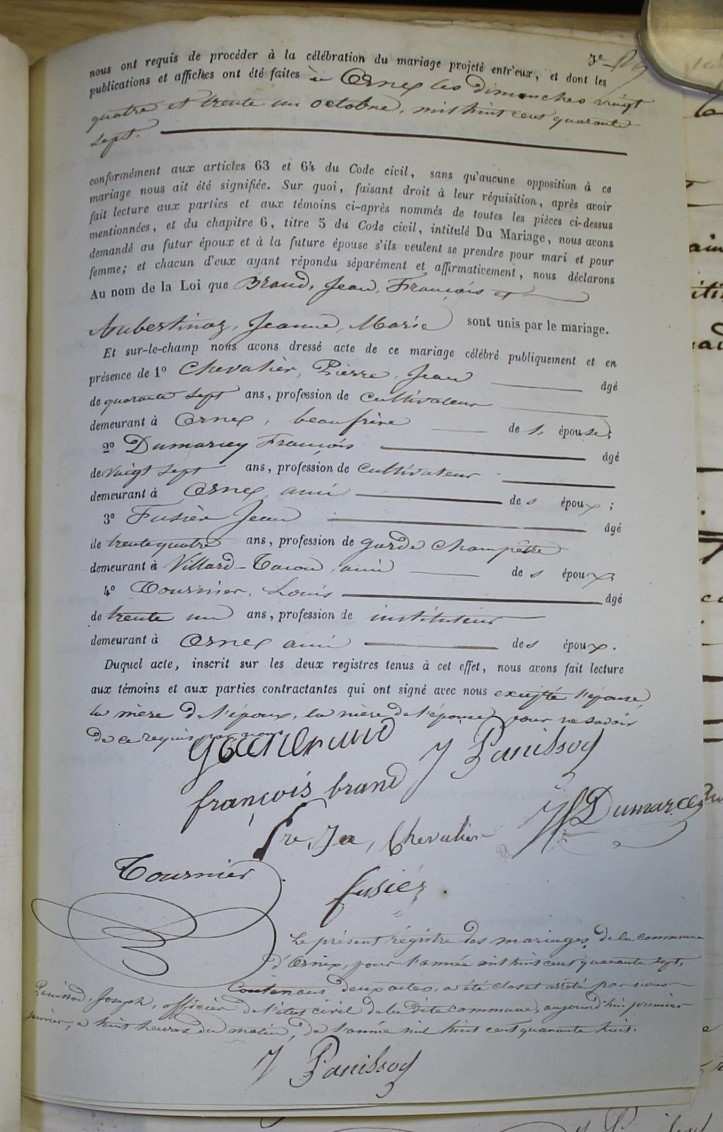 3e
nous ont requis de procéder à la célébration du mariage projeté entr'eux, et dont les
publications et affiches ont été faites à Ornex les dimanches vingt
quatre et trente un octobre, mil huit cent quarante
sept.
conformément aux articles 63 et 64 du Code civil, sans qu'aucune opposition à ce
mariage nous ait été signifiée. Sur quoi, faisant droit à leur réquisition, après avoir
fait lecture aux parties et aux témoins ci-après nommés de toutes les pièces ci-dessus
mentionnées, et du chapitre 6, titre 5 du Code civil, intitulé Du Mariage, nous avons
demandé au futur époux et à la future épouse s'ils veulent se prendre pour mari et pour
femme; et chacun d'eux ayant répondu séparément et affirmativement, nous déclarons
Au nom de la Loi que Braud, Jean, François et
Aubertinaz, Jeanne, Marie sont unis par le mariage.
Et sur-le-champ nous avons dressé acte de ce mariage célébré publiquement et en
présence de 1o Chevalier, Pierre, Jean âgé
de quarante sept ans, profession de cultivateur
demeurant à Ornex, beau frère de s. épouse;
2o Dumarcey François âgé
de vingt sept ans, profession de cultivateur
demeurant à Ornex, ami de s époux;
3o Fusier Jean âgé
de trente quatre ans, profession de garde champêtre
demeurant à Villard-Tacon, ami de s époux;
4o Tournier, Louis âgé
de trente un ans, profession de instituteur
demeurant à Ornex ami de s époux.
Duquel acte, inscrit sur les deux registres tenus à cet effet, nous avons fait lecture
aux témoins et aux parties contractantes qui ont signé avec nous excepté l'épouse,
la mère de l'époux, la mère de l'épouse, pour ne savoir
de ce requis
J Panissod
françois braud
Pre, Jn, Chevalier
Dumarcey
Tournier
fusier
Le présent registre des mariages de la commune
d'Ornex, pour l'année mil huit cent quarante sept,
Contenant deux actes, a été clos et arrêté par nous
Panissod, Joseph, officier de l'état civil de la dite commune, aujourd'hui premier
janvier, à huit heures du matin, de l'année mil huit cent quarante huit.
J Panissod